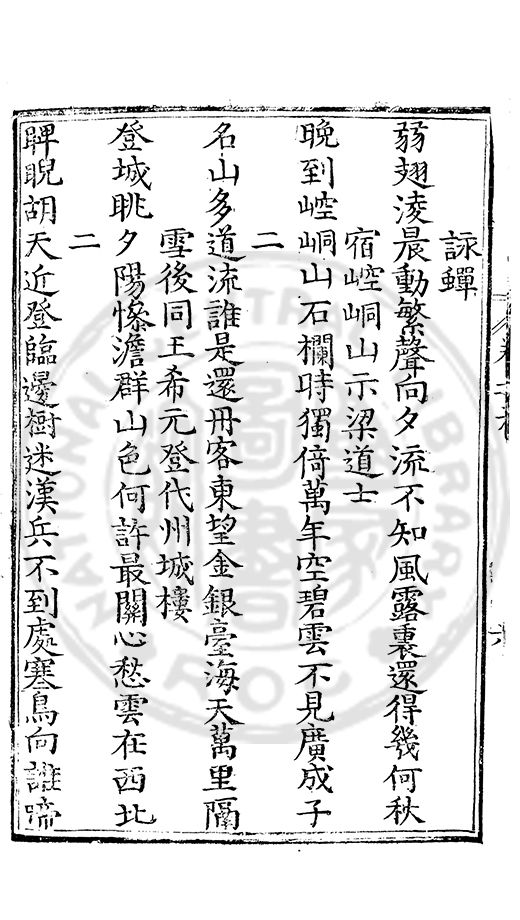 詠蟬
弱翅淩晨動繁聲向夕流不知風露裏還得幾何秋
宿崆峒山示梁道士
晚到崆峒山石欄時獨倚萬年空碧雲不見廣成子
二
名山多道流誰是還丹客東望金銀臺海天萬里隔
雪後同王希元登代州城樓
登城眺夕陽慘澹群山色何許最關心愁雲在西北
二
睥睨胡天近登臨邊樹迷漢兵不到處塞鳥向誰啼
NATIONAL CENTRAL LIBRARY